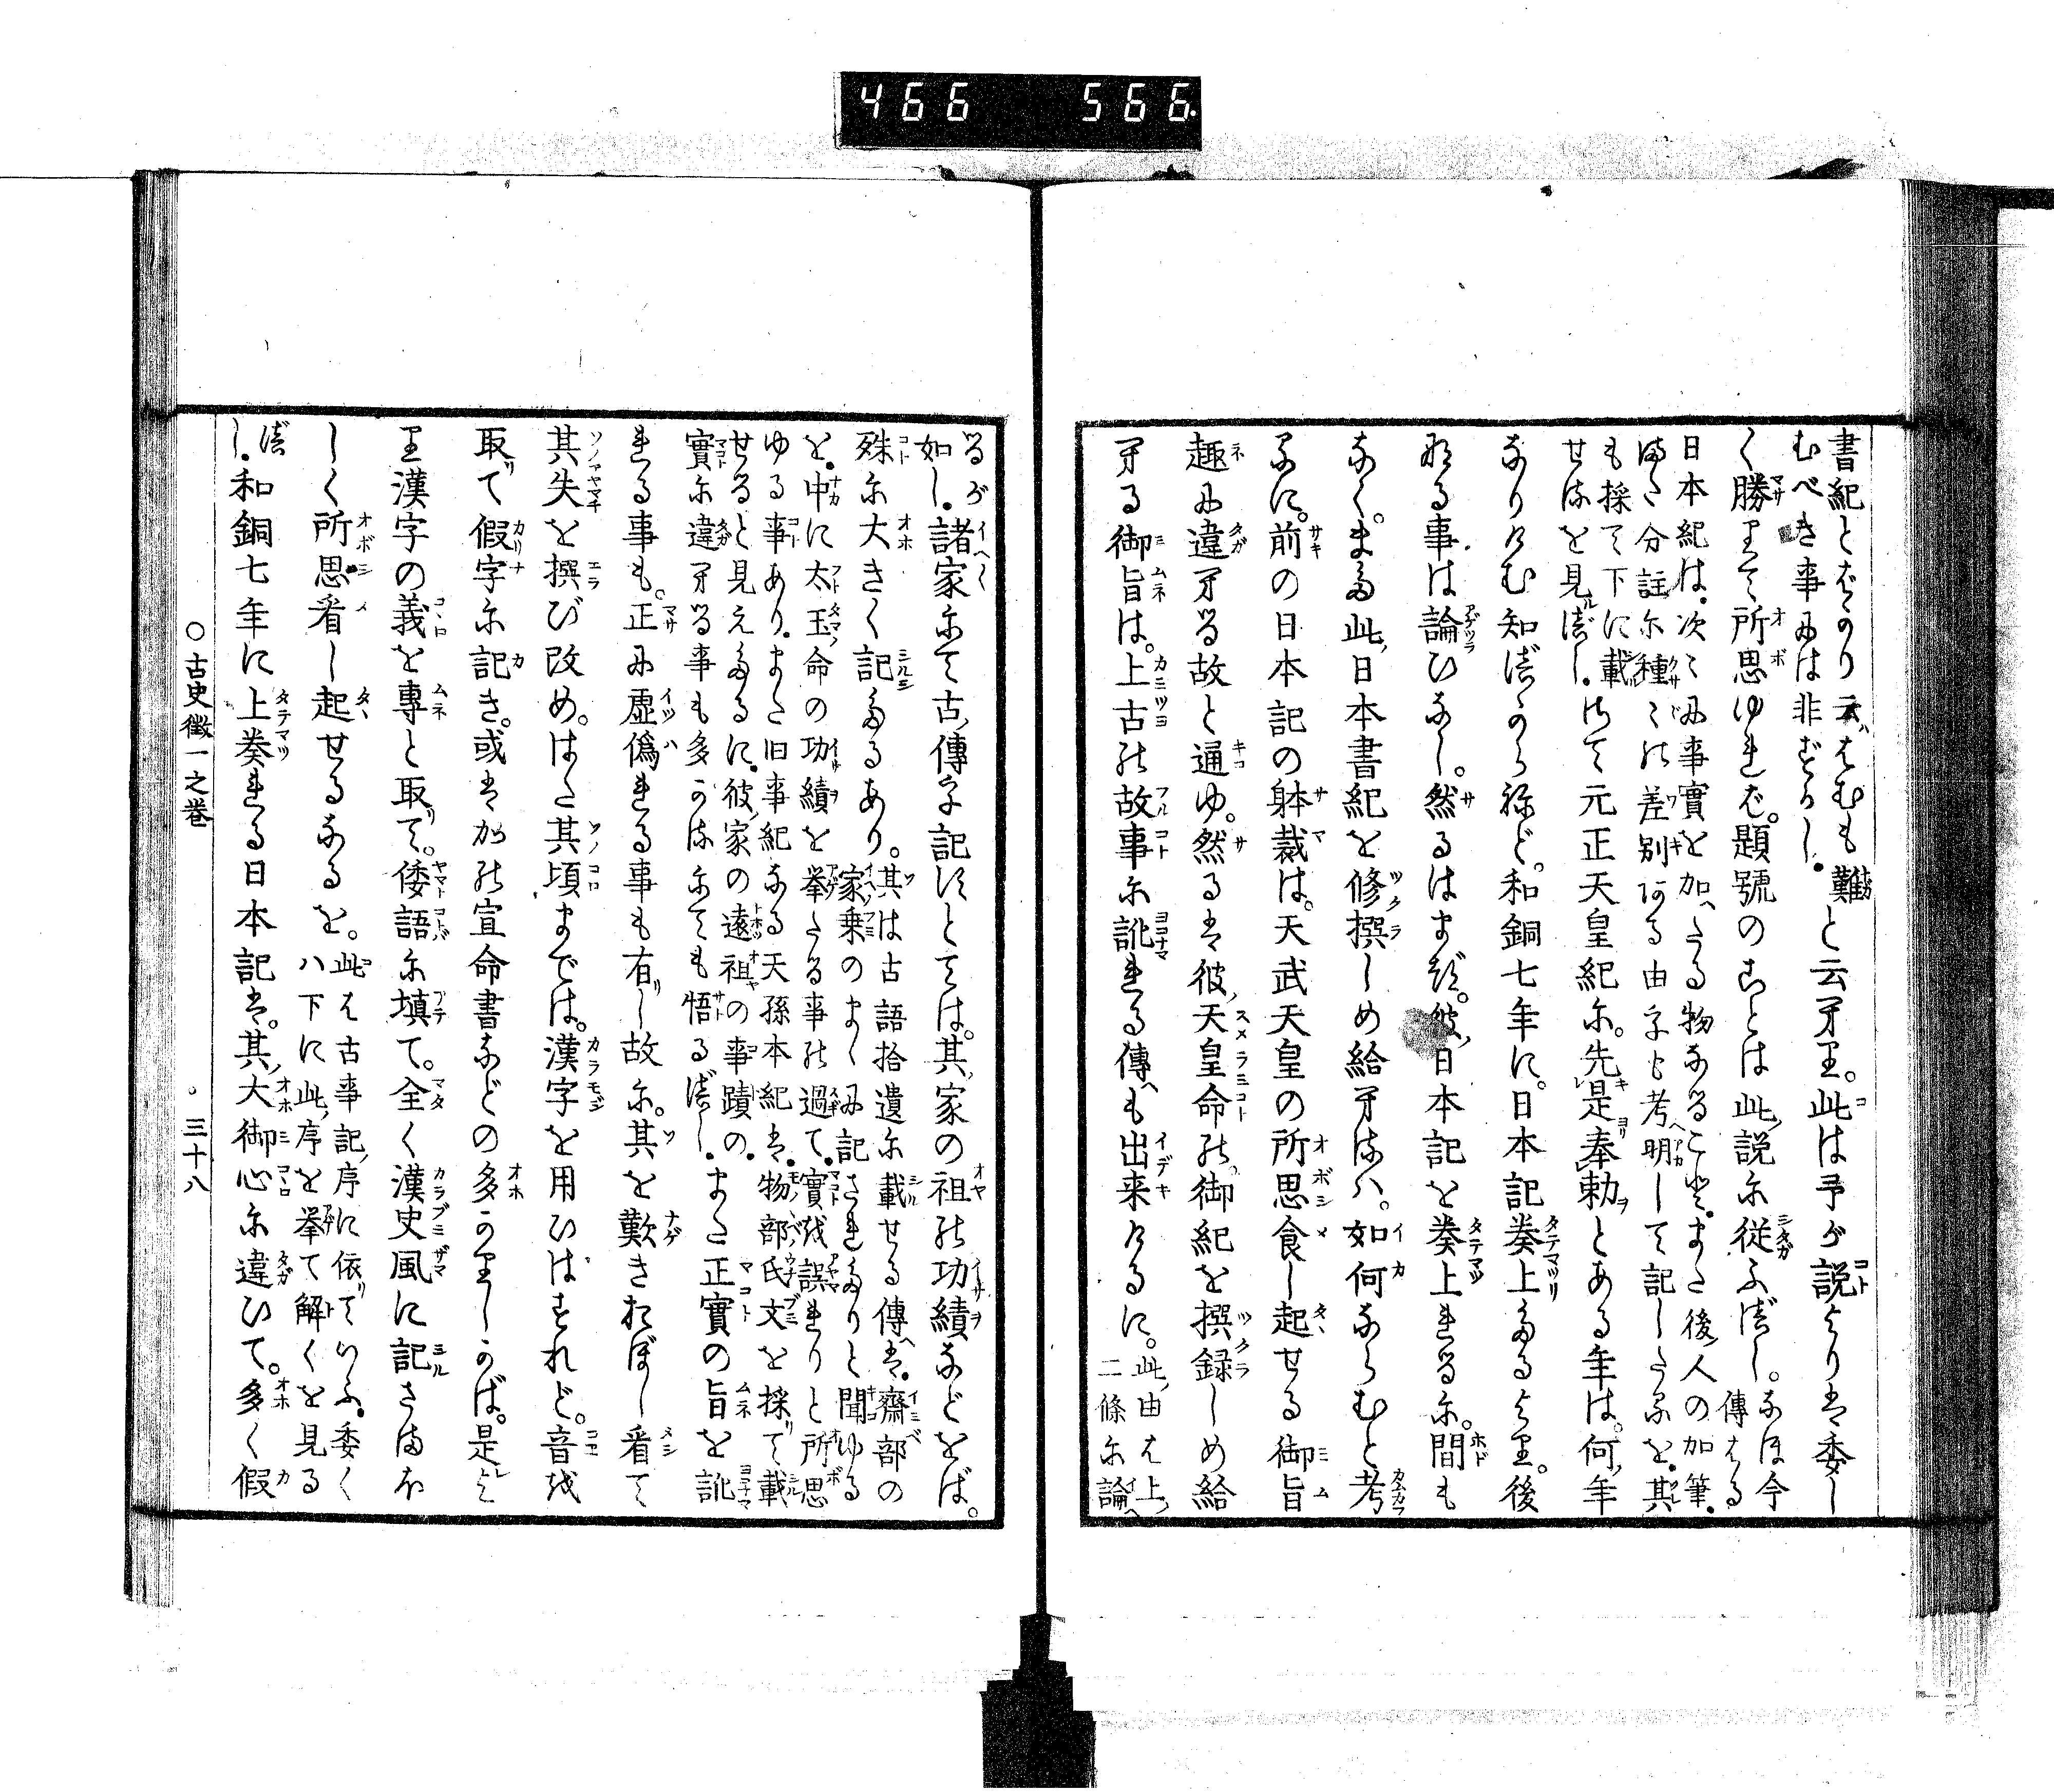 466 566
書紀とばかり云はむも難と云り。此は予が説よりは委し
むべき事には非ざるべし。
く勝りて所思ゆれば。題號のことは此説に従ふべし。なほ今傳はる
日本紀は。次々に事實を加へたる物なること。また後人の加筆。
また分註に種々の差別ある由をも考へ明して記したるを。其
も採て下に載せるを見べし。さて元正天皇紀に。先是奉勅とある年は。何年
なりけむ知べからねど。和銅七年に。日本記奏上たるより。後
なる事は論ひなし。然るはまづ。彼日本記を奏上れるに。間も
なく。また此日本書紀を修撰しめ給するは。如何ならむと考
ふに。前の日本記の躰裁は。天武天皇の所思食し起せる御旨
趣に違する故と通ゆ。然るは彼天皇命の。御紀を撰録しめ給
する御旨は。上古の故事に訛れる傳も出来けるに。此由は上二條に論へ
るが如し。諸家にて古傳を記すとては。其家の祖の功績などをば。
殊に大きく記たるあり。其は古語拾遺に載せる傳は。齋部の
家乗のまゝに記されたりと聞ゆる
を。中に太玉命の功績を挙たる事の過て。實を誤れりと所思
ゆる事あり。また旧事紀なる天孫本紀は。物部氏文を採て載
せると見えたるに。彼家の遠祖の事蹟の。
實に違する事も多かるにても悟るべし。また正實の旨を訛
れる事も。正に虚偽れる事も有し故に。其を歎きおぼし看て
其失を撰び改め。はた其頃までは。漢字を用ひはすれど。音を
取て假字に記き。或は加の宣命書などの多かりしかば。是より
漢字の義を専と取て。倭語に填て。全く漢史風に記さまほ
しく所思看し起せるなるを。此は古事記序に依ていふ。委く
ハ下に此序を挙て解くを見る
べし。和銅七年に上奏れる日本記は。其大御心に違ひて。多く假
○古史徴一之巻 三十八